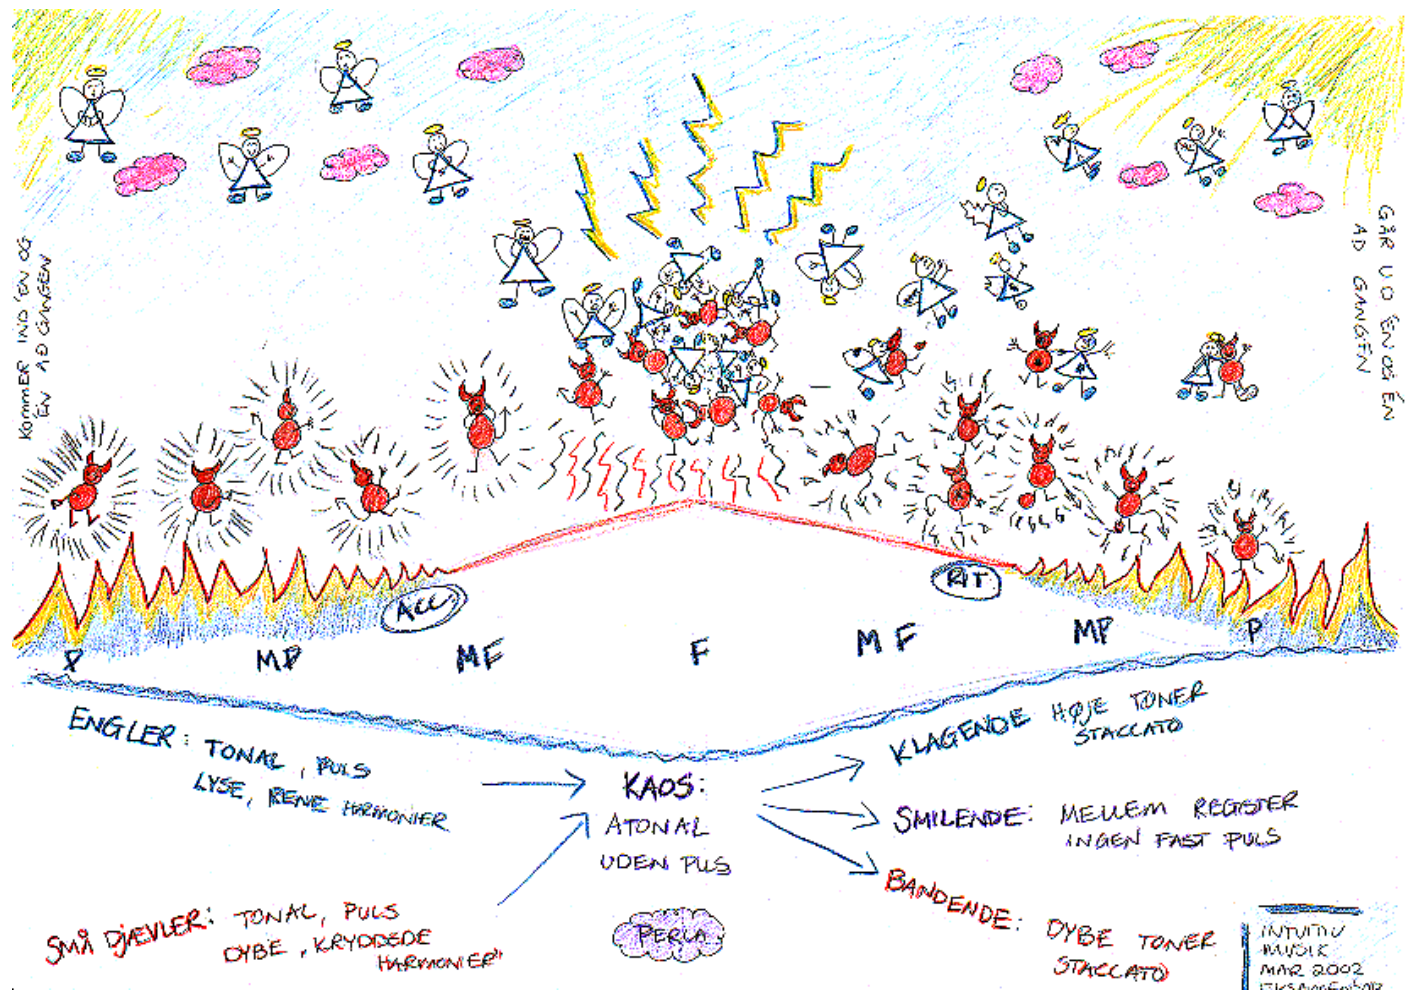 KOMMER IND ÉN OG
ÉN AD GANGEN
GÅR UD ÉN OG ÉN
AD GANGEN
ACC.
RIT
P
MP
MF
F
MF
MP
P
ENGLER: TONAL, PULS
LYSE, RENE HARMONIER
SMÅ DJÆVLER: TONAL, PULS
DYBE, KRYDDEDE
HARMONIER"
KAOS:
ATONAL
UDEN PULS
PERLA
KLAGENDE HØJE TONER
STACCATO
SMILENDE: MELLEM REGISTER
INGEN FAST PULS
BANDENDE: DYBE TONER
STACCATO
INTUITIV
MUSIK
MAR 2002